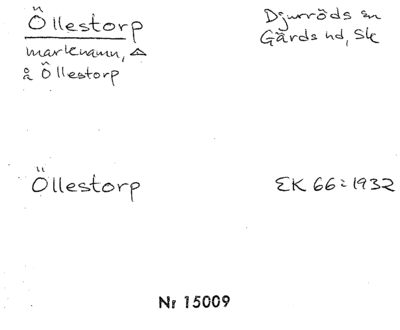 Öllestorp
Djurröds sn
Gärds hd, Sk
marknamn, △
å Öllestorp
Öllestorp
EK 66:1932
Nr 15009